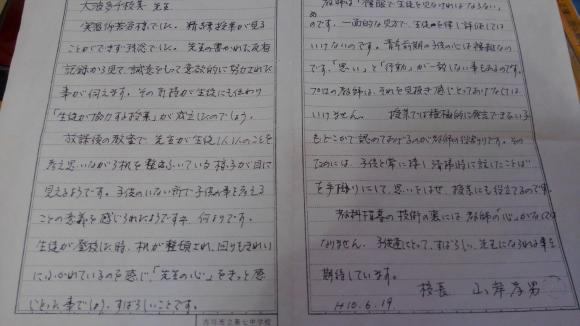 大波多千枝美 先生
実習お疲れ様でした。精錬授業が見る
ことができず残念でした。先生の書かれた反省
記録から見て、誠意をもって意欲的に努力された
事が伺えます。その気持が生徒にも伝わり
「生徒が協力する授業」が度々したのでしょう。
放課後の教室で先生が生徒1人1人のことを
考え思いながら机を整とんしている様子が目に
見えるようです。子供のいない所で子供の事を考える
ことの意義を感じられたようですネ。何よりです。
生徒が登校した時、机が整頓され、回りもきれい
にふかれているのを感じ、「先生の心」をきっと感
じとった事でしょう。すばらしいことです。
市川市立第七中学校
教師は「複眼で生徒を見なければならない」
のです。一面的な見方で、生徒を評価しては
いけないのです。青年前期の子供の心は複雑なの
です。「思い」と「行動」が一致しない事もあるのです。
プロの教師は、それを見抜き感じとってあげなくては
いけません。授業では積極的に発言できない子
もどこかで認めてあげるのが教師の役割りです。その
ためには、子供と常に接し、清掃時に話したことば
を手掛りにして、思いをはせ、授業にも役立てるのです。
教科指導の技術の裏には教師の「心」がなくては
なりません。子供達にとって、すばらしい先生になられる事を
期待しています。
校長 山岸孝男
H10.6.19.